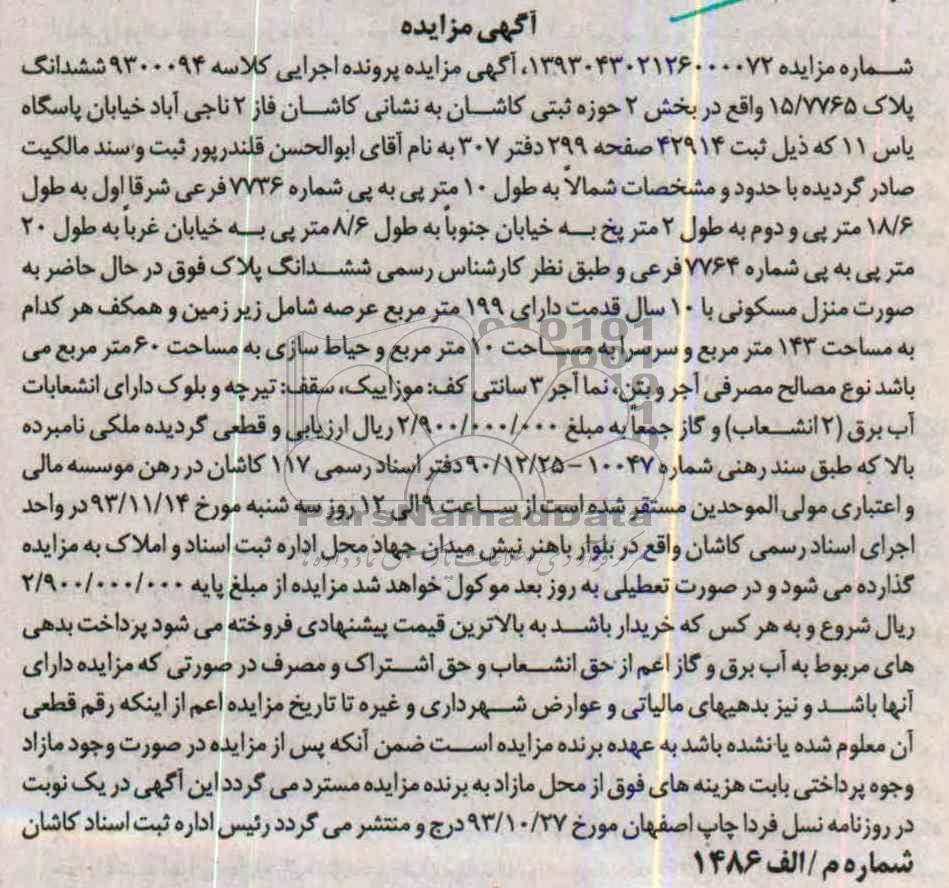 آگهی مزایده
شماره مزایده ۱۳۹۳۰۴۳۰۲۱۲۶۰۰۰۰۷۲، آگهی مزایده پرونده اجرایی کلاسه ۹۳۰۰۰۹۴ ششدانگ
پلاک ۱۵/۷۷۶۵ واقع در بخش ۲ حوزه ثبتی کاشان به نشانی کاشان فاز ۲ ناجی آباد خیابان پاسگاه
یاس ۱۱ که ذیل ثبت ۴۲۹۱۴ صفحه ۲۹۹ دفتر ۳۰۷ به نام آقای ابوالحسن قلندرپور ثبت و سند مالکیت
صادر گردیده با حدود و مشخصات شمالاً به طول ۱۰ متر پی به پی شماره ۷۷۳۶ فرعی شرقا اول به طول
۱۸/۶ متر پی و دوم به طول ۲ متر پخ به خیابان جنوباً به طول ۸/۶ متر پی به خیابان غرباً به طول ۲۰
متر پی به پی شماره ۷۷۶۴ فرعی و طبق نظر کارشناس رسمی ششدانگ پلاک فوق در حال حاضر به
صورت منزل مسکونی با ۱۰ سال قدمت دارای ۱۹۹ متر مربع عرصه شامل زیر زمین و همکف هر کدام
به مساحت ۱۴۳ متر مربع و سرسرا به مساحت ۱۰ متر مربع و حیاط سازی به مساحت ۶۰ متر مربع می
باشد نوع مصالح مصرفی آجر و بتن، نما آجر ۳ سانتی کف: موزاییک، سقف: تیرچه و بلوک دارای انشعابات
آب برق (۲ انشعاب) و گاز جمعاً به مبلغ ۲/۹۰۰/۰۰۰/۰۰۰ ریال ارزیابی و قطعی گردیده ملکی نامبرده
بالا که طبق سند رهنی شماره ۱۰۰۴۷ - ۹۰/۱۲/۲۵ دفتر اسناد رسمی ۱۱۷ کاشان در رهن موسسه مالی
و اعتباری مولی الموحدین مستقر شده است از ساعت ۹ الی ۱۲ روز سه شنبه مورخ ۹۳/۱۱/۱۴ در واحد
اجرای اسناد رسمی کاشان واقع در بلوار باهنر نبش میدان جهاد محل اداره ثبت اسناد و املاک به مزایده
گذارده می شود و در صورت تعطیلی به روز بعد موکول خواهد شد مزایده از مبلغ پایه ۲/۹۰۰/۰۰۰/۰۰۰
ریال شروع و به هر کس که خریدار باشد به بالاترین قیمت پیشنهادی فروخته می شود پرداخت بدهی
های مربوط به آب برق و گاز اعم از حق انشعاب و حق اشتراک و مصرف در صورتی که مزایده دارای
آنها باشد و نیز بدهیهای مالیاتی و عوارض شهرداری و غیره تا تاریخ مزایده اعم از اینکه رقم قطعی
آن معلوم شده یا نشده باشد به عهده برنده مزایده است ضمن آنکه پس از مزایده در صورت وجود مازاد
وجوه پرداختی بابت هزینه های فوق از محل مازاد به برنده مزایده مسترد می گردد این آگهی در یک نوبت
در روزنامه نسل فردا چاپ اصفهان مورخ ۹۳/۱۰/۲۷ درج و منتشر می گردد رئیس اداره ثبت اسناد کاشان
شماره م /الف ۱۴۸۶
ParsNamadData